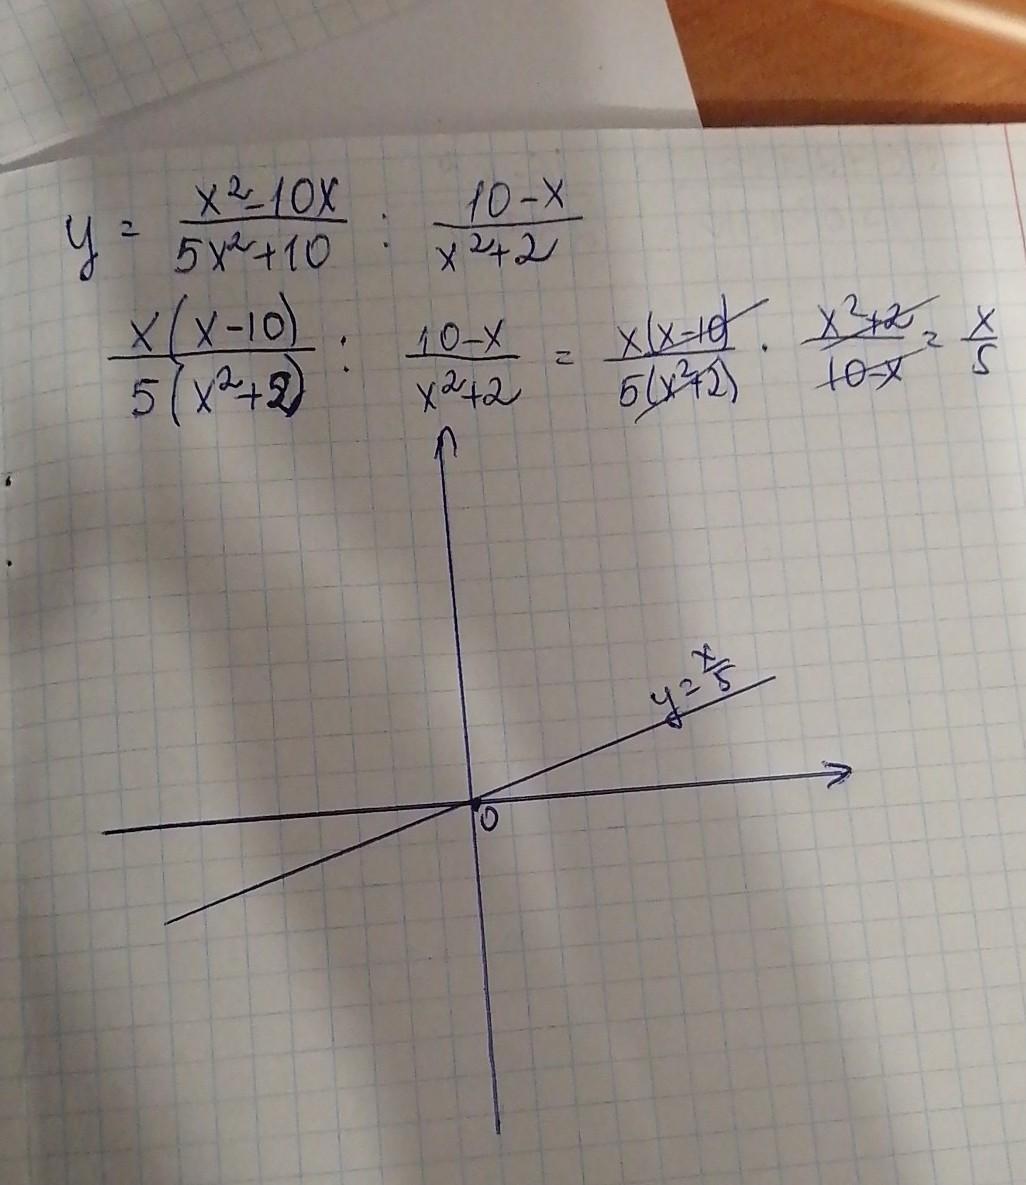 y = \frac{x^2-10x}{5x^2+10} : \frac{10-x}{x^2+2}
\frac{x(x-10)}{5(x^2+2)} : \frac{10-x}{x^2+2} = \frac{x(x-10)}{5(x^2+2)} \cdot \frac{x^2+2}{10-x} = \frac{x}{5}
y = \frac{x}{5}
0